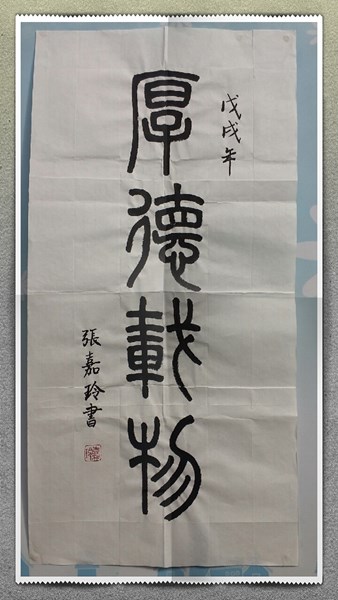 戊戌年
厚德載物
張嘉玲書